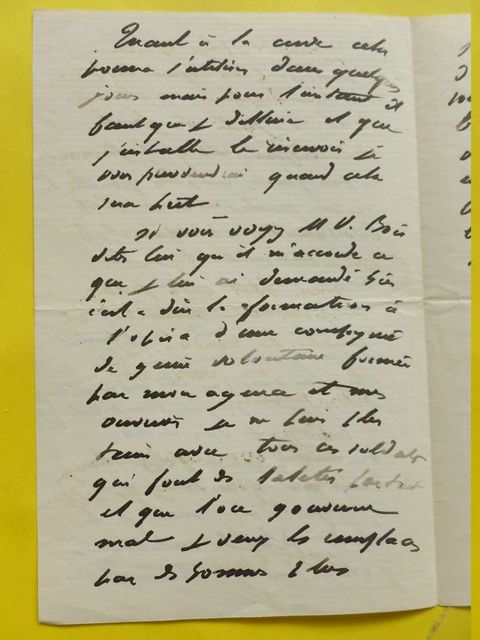 Quant à la cuve cela
pourra s'utiliser dans quelques
jours mais pour l'instant il
faut que je déblaie et que
j'installe le réservoir je
vous préviendrai quand cela
sera prêt.
Si vous voyez M V. Bois
dites lui qu'il m'accorde ce
que je lui ai demandé hier
c'est a dire la formation à
l'opéra d'une compagnie
de génie volontaire formée
par mon agence et mes
ouvriers je ne puis plus
tenir avec tous ces soldats
qui font des saletés partout
et que l'on gouverne
mal je veux les remplacer
par des hommes plus